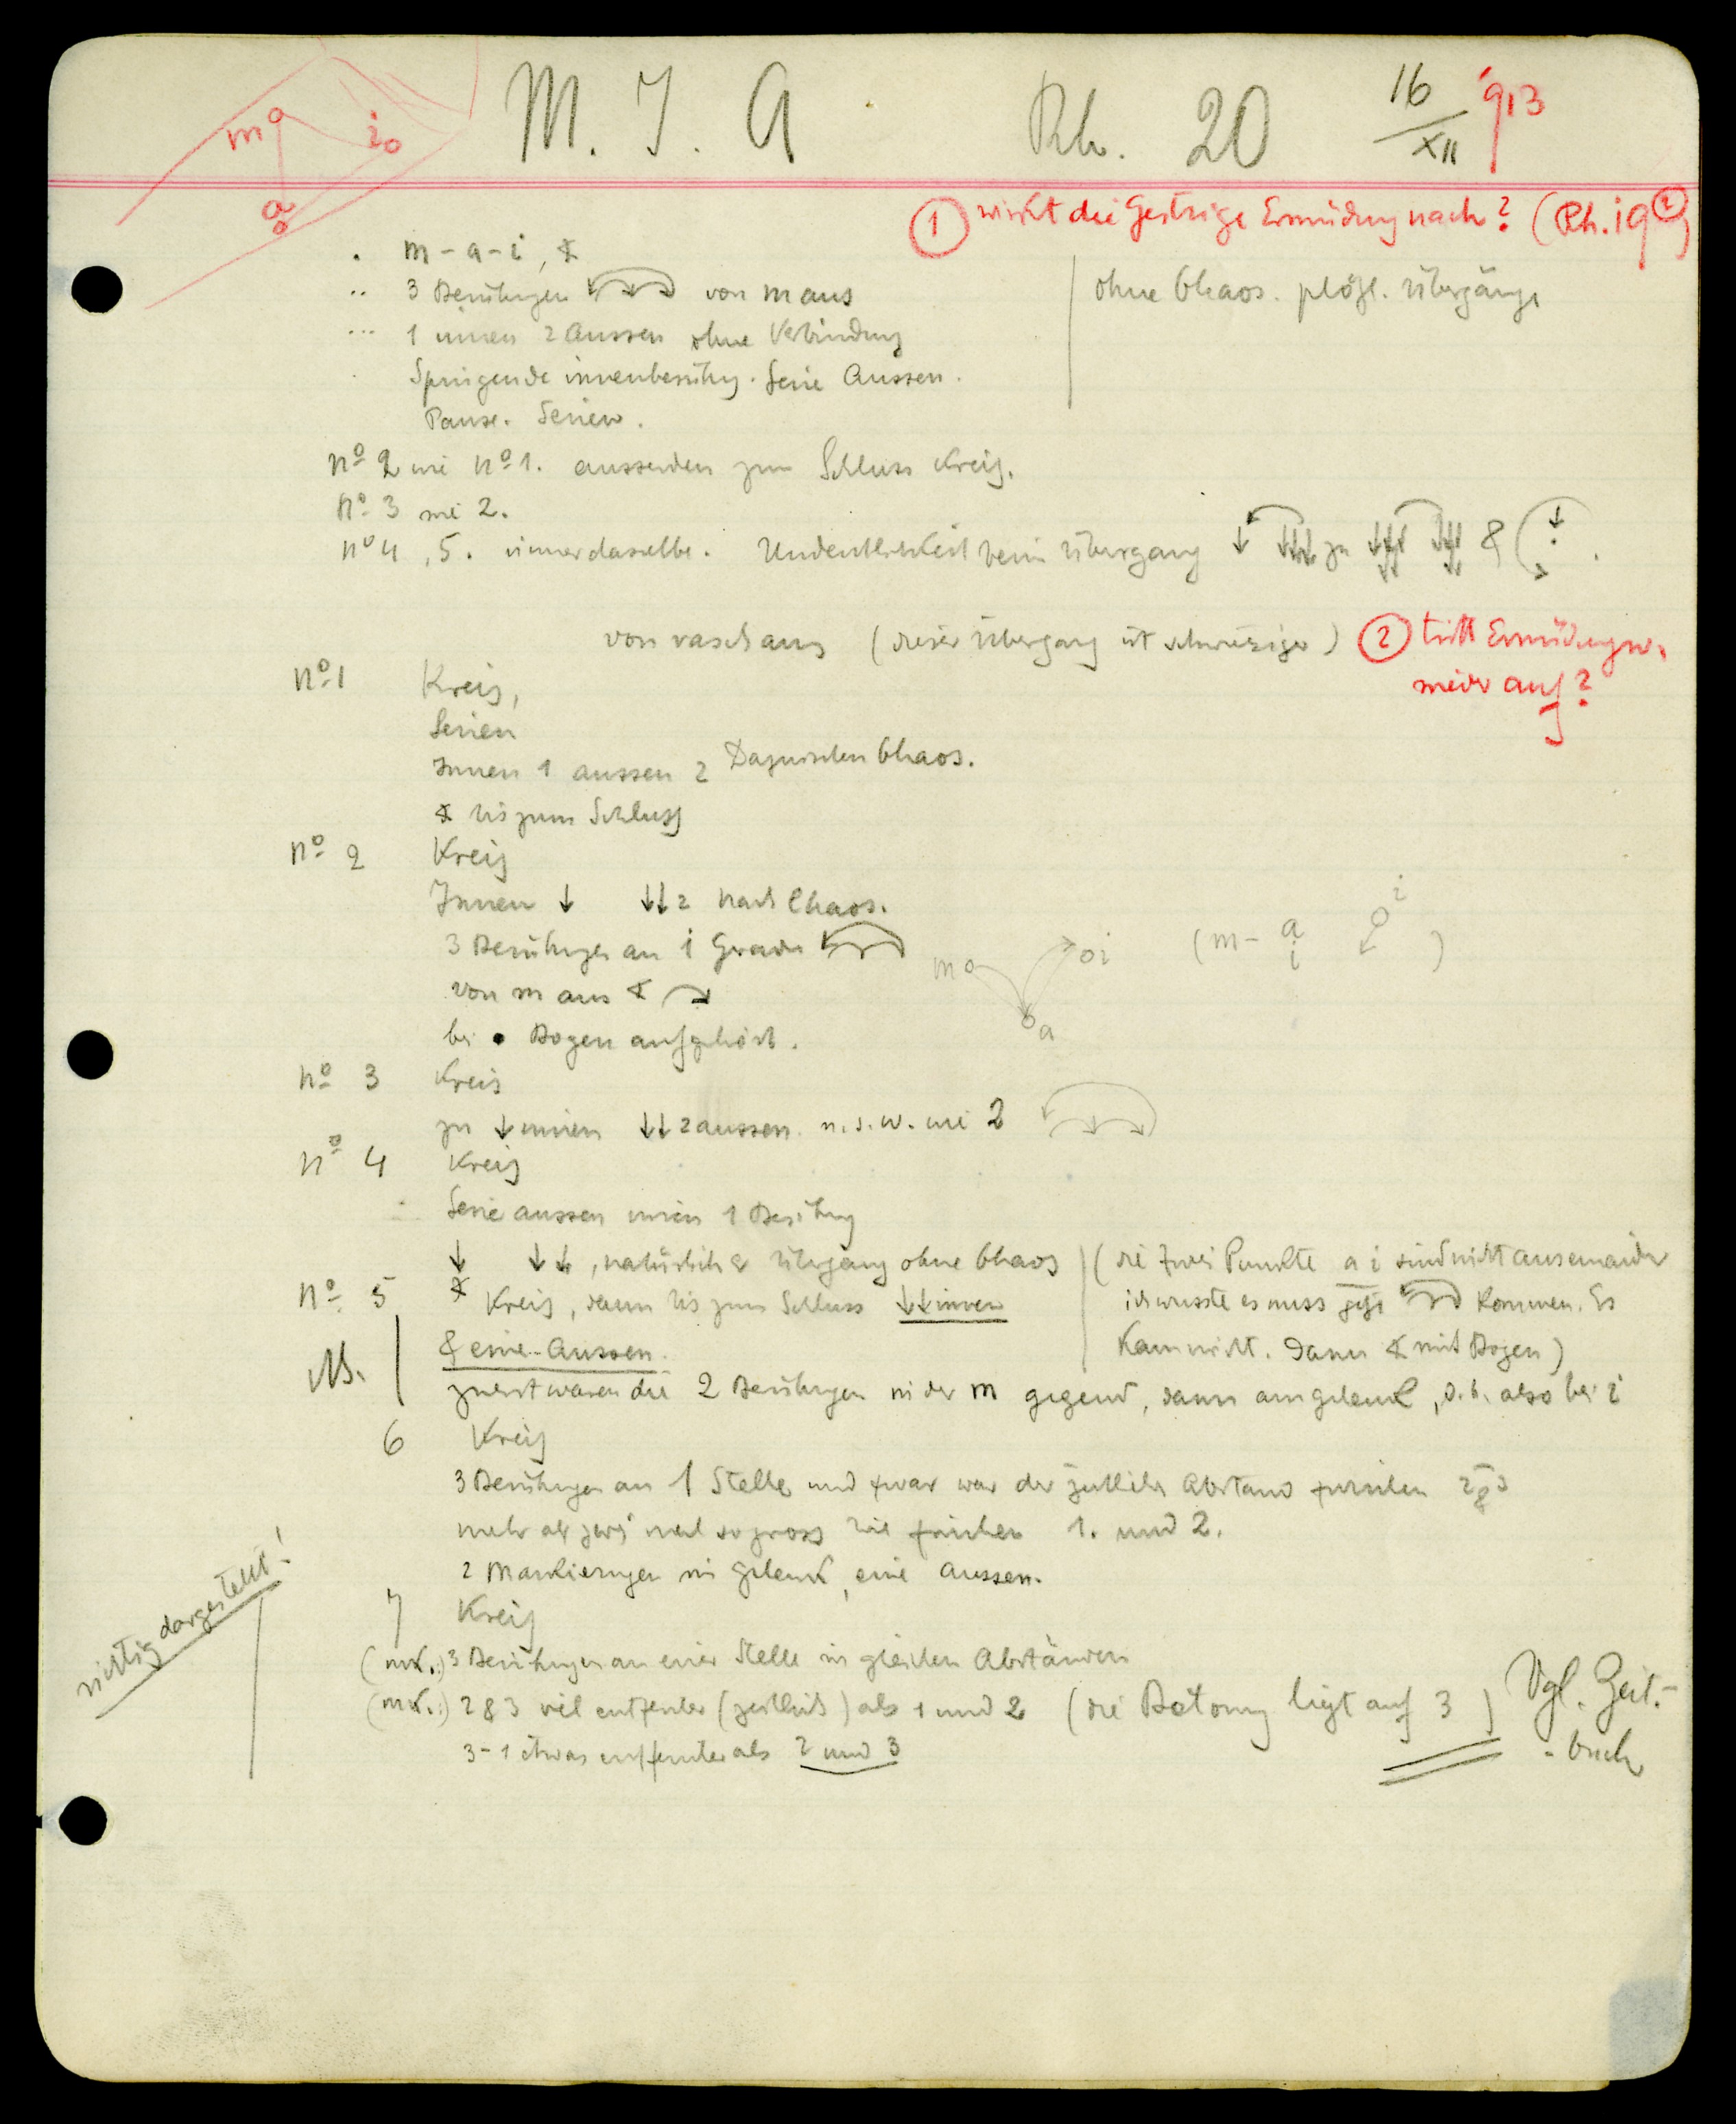 M. J. A Rh. 20 16/XII 913
m i a
① wirkt die gestrige Ermüdung nach? (Rh. 19②)
m - a - i, ∡
3 Berührungen von m aus
ohne Chaos. plözl. Übergänge
1 innen 2 aussen ohne Verbindung
Springende innenberührg. Serie Aussen.
Pause. Serien.
No 2 wie No 1. ausserdem zum Schluss Kreis.
No 3 wie 2.
No 4, 5. immer dasselbe. Undeutlichkeit beim Übergang ↓ ↓↓↓ zu ↓↓ ↓↓ &
von rasch aus (dieser Übergang ist schwieriger) ② tritt Ermüdung w.
mehr auf?
No 1 Kreis,
Serien
Innen 1 aussen 2 Dazwischen Chaos.
∡ bis zum Schluss
No 2 Kreis
Innen ↓ ↓↓ 2 nach Chaos.
3 Berührungen an 1 Gerade
m i a (m - a i i)
von m aus ∡
bei • Bogen aufgehört.
No 3 Kreis
zu ↓ innen ↓↓ 2 aussen. u.s.w. wie 2
No 4 Kreis
Serie aussen innen 1 Berührg
↓ ↓↓, natürlich & Übergang ohne Chaos
(die zwei Punkte a i sind nicht auseinander
ich wusste es muss jetzt kommen. Es
kam nicht. Dann ∡ mit Bogen)
No 5 ∡ Kreis, dann bis zum Schluss ↓↓ innen
& eine Aussen.
NB. zuerst waren die 2 Berührungen in der m gegend, dann am gelenk, d.h. also bei i
6 Kreis
3 Berührungen an 1 Stelle und zwar war der zeitliche Abstand zwischen 2 & 3
mehr als zwei mal so gross wie zwischen 1. und 2.
2 Markierungen im gelenk, eine aussen.
7 Kreis
3 Berührungen an einer Stelle in gleichen Abständen
2 & 3 viel entfernter (zeitlich) als 1 und 2 (die Betonung liegt auf 3)
3-1 etwas entfernter als 2 und 3
Vgl. Zeit-
-buch
richtig dargestellt!